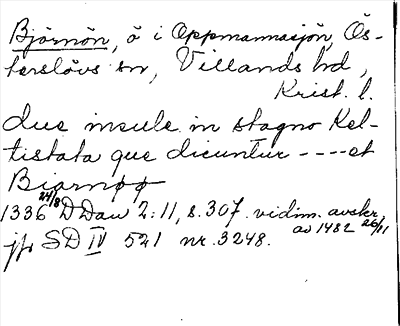 Björnön, ö i Oppmannasjön, Ös-
terslövs sn, Villands hd,
Krist. l.
due insule in stagno Kel-
tistata que dicuntur ---- et
Biornøø
1336 24/8 DDan 2:11, s. 307. vidim. avskr.
av 1482 26/11
jfr SD IV 521 nr. 3248.